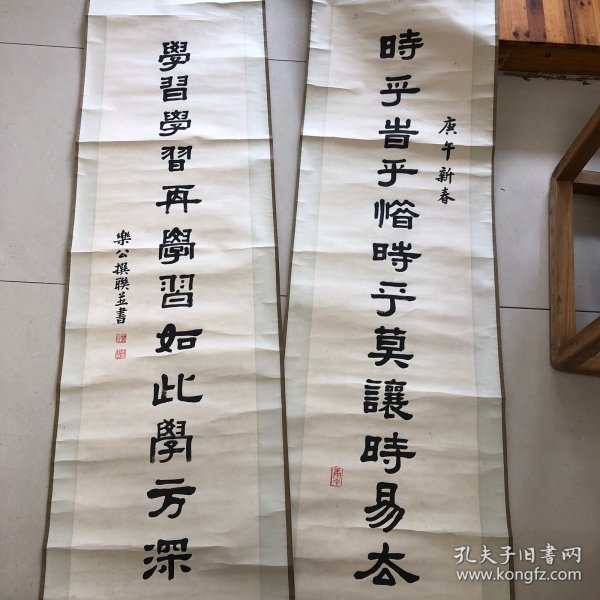 庚午新春
時乎旹乎惜時乎莫讓時易厺
學習學習再學習如此學方深
樂公撰聯並書
孔夫子旧書网
www.kongfz.com